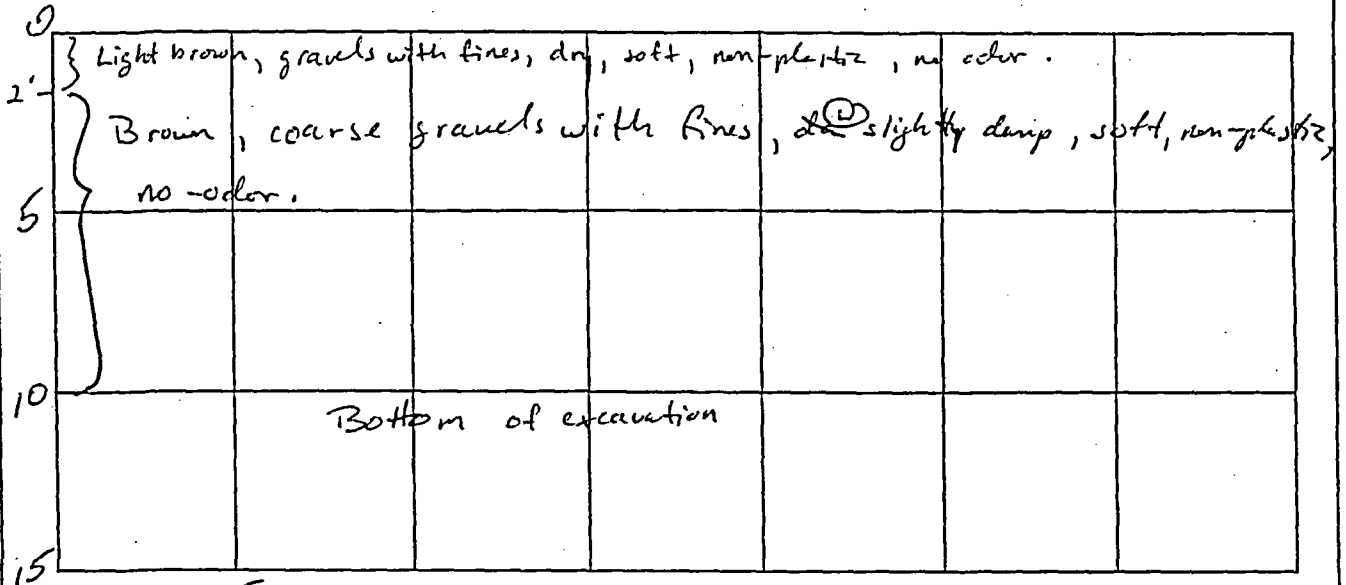 0
Light brown, gravels with fines, dry, soft, non-plastic, no odor.
2'
Brown, coarse gravels with fines, slightly damp, soft, non-plastic,
no-odor.
5
10
Bottom of excavation
15